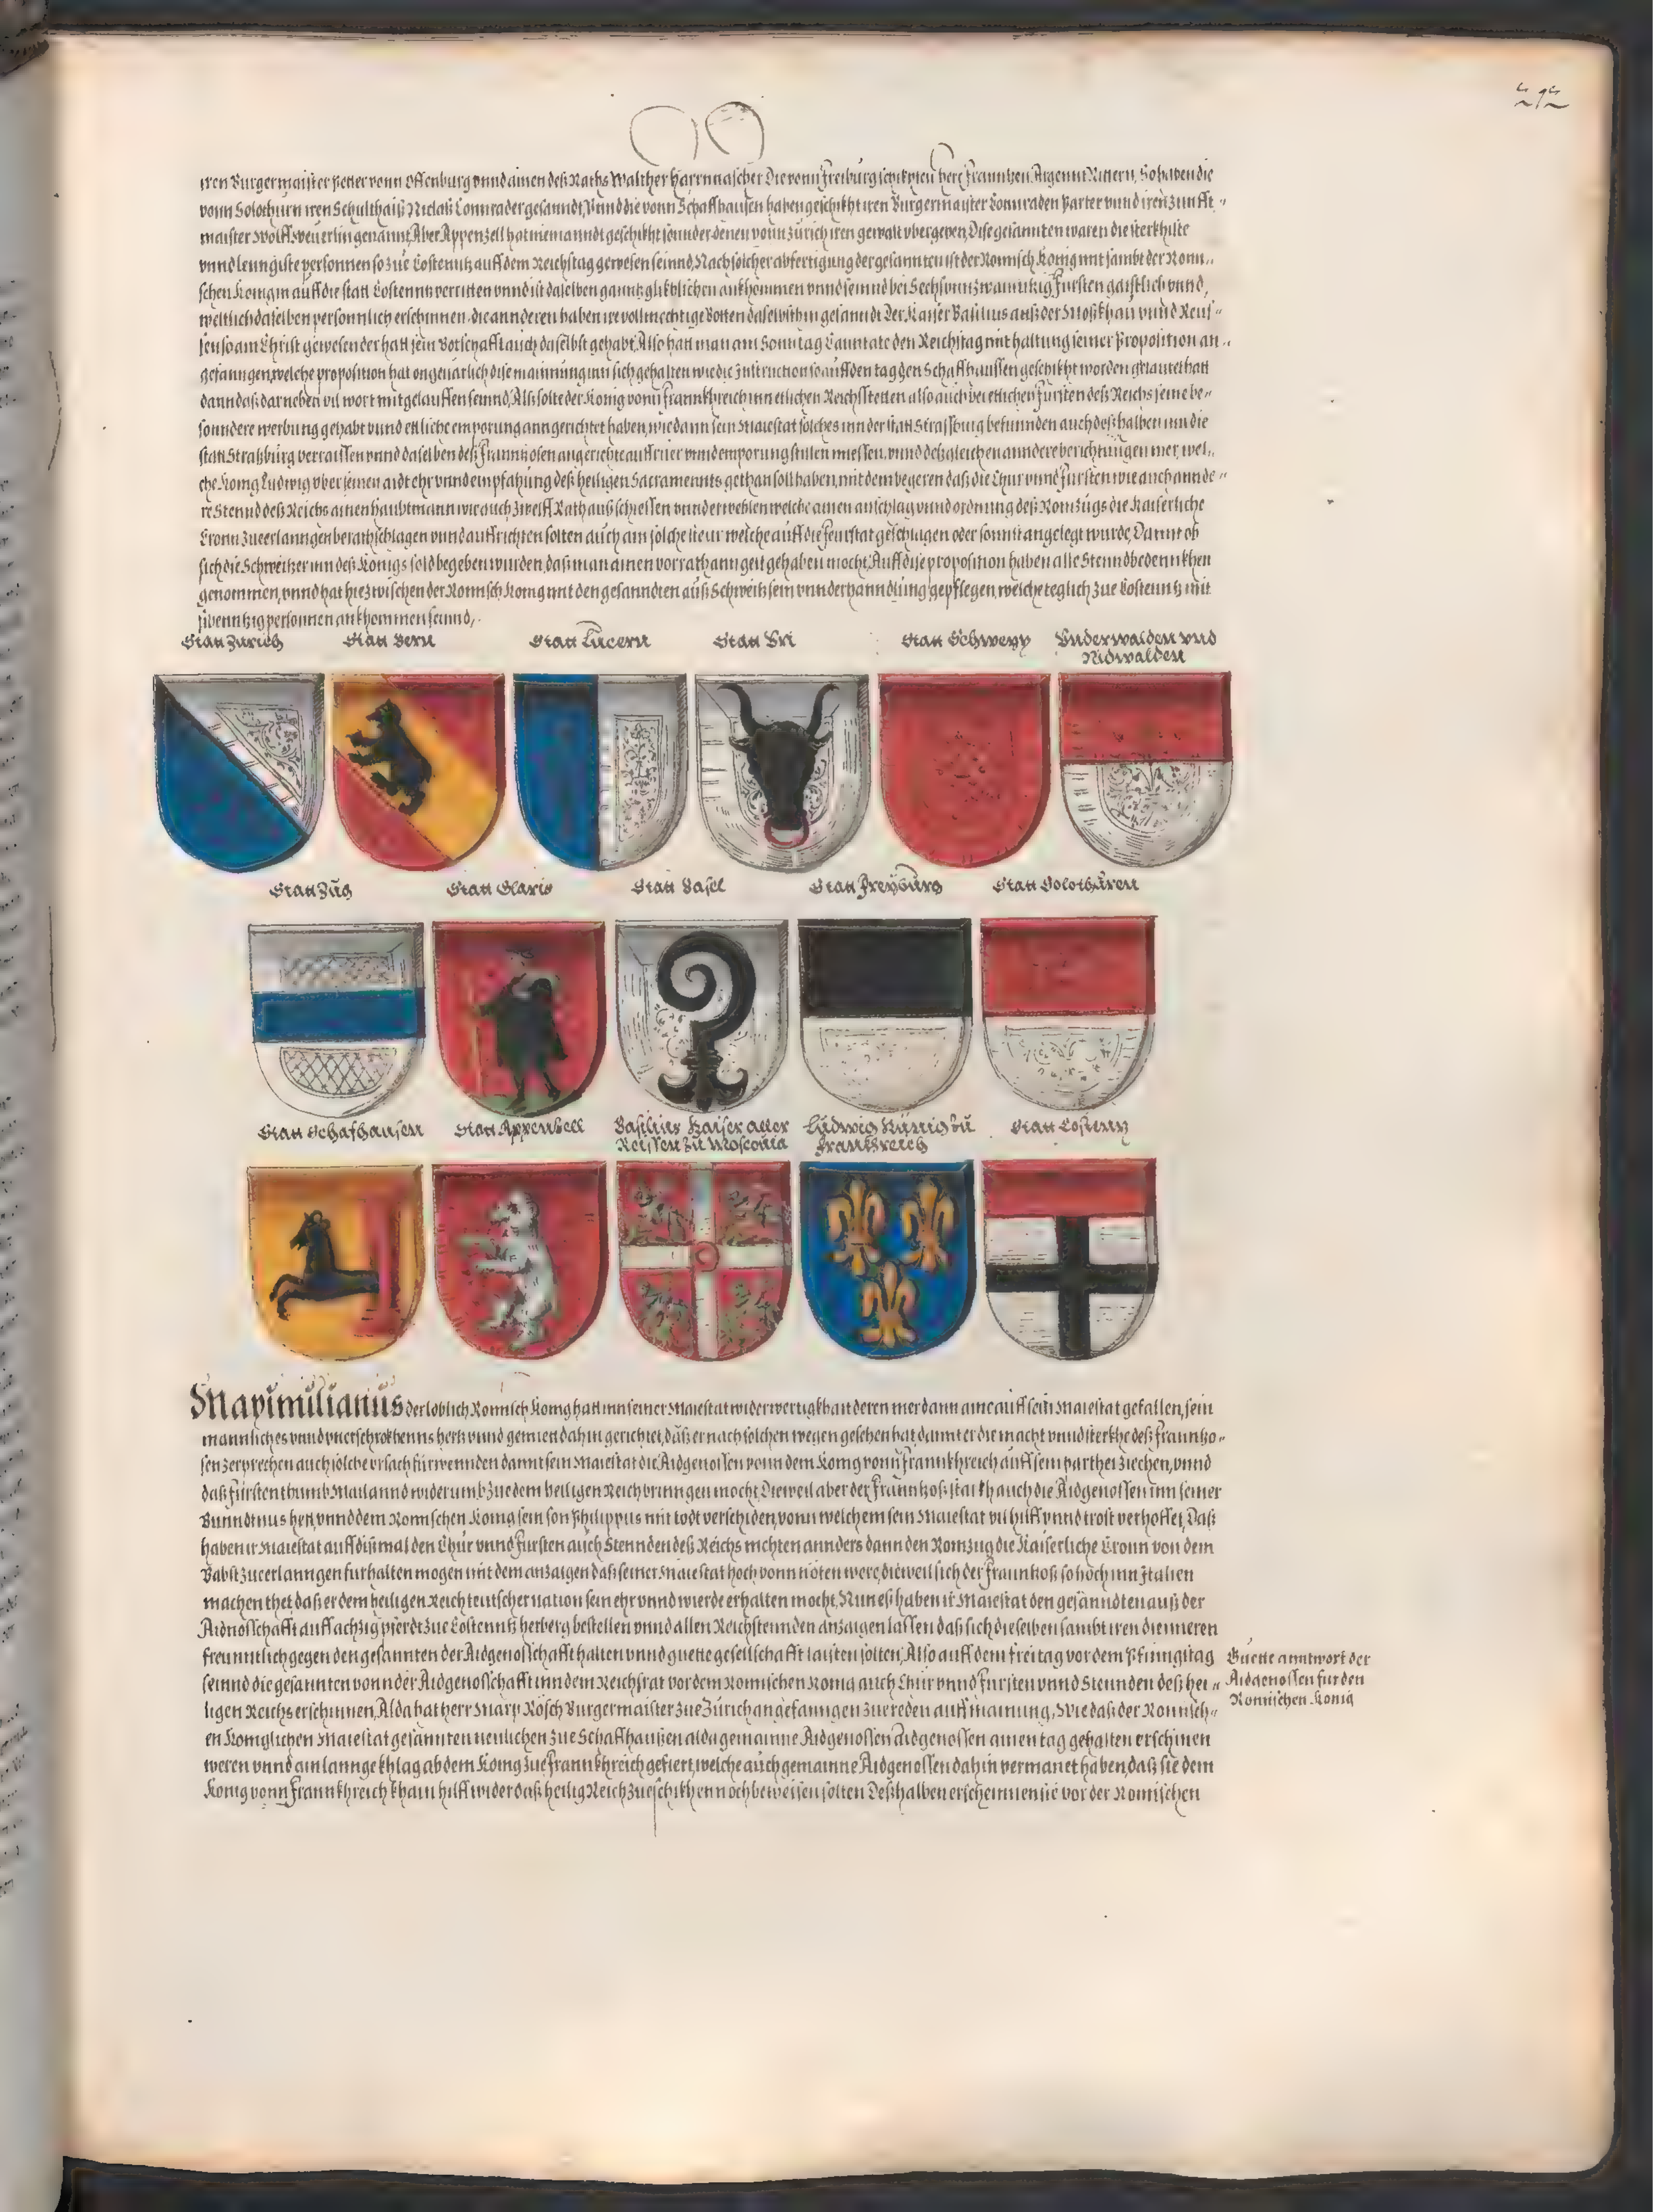 iren Burgermaister Petter vonn Offenburg vnnd ainen deß Raths Walther Harnnascher Die vonn Freiburg schikhten herr Franntzen Argennt Rittern, So haben die
vonn Solothurn iren Schulthaiß Niclaß Connrader gesanndt, Vnnd die vonn Schaffhausen haben geschikht iren Burgermaister Connraden Parter vnnd iren zunfft-
maister Wolff Weuerlin genannt, Aber Appenzell hat niemanndt geschikht sonnder denen vonn Zürich iren gewalt vbergeben, Dise gesannten waren die sterkhiste
vnnd lenngiste personnen so zue Costenntz auff dem Reichstag gewesen seinnd, Nach solcher abfertigung der gesannten ist der Romisch Konig mit sambt der Romi-
schen Konigin auff die statt Costenntz verritten vnnd ist daselben ganntz glikhlichen ankhommen vnnd seinnd bei Sechsvnnzwainntzig Fursten gaistlich vnnd
weltlich daselben personnlich erschinnen, die annderen haben ire vollmechtige Botten daselbsthin gesanndt Der Kaiser Basilius auß der Moßkhau vnnd Reus-
sen so am Christ gewesen der hatt sein Botschafft auch daselbst gehabt, Also hatt man am Sonntag Canntate den Reichstag mit haltung seiner Proposition an-
gefanngen, welche proposition hat ongeuarlich dise mainnung inn sich gehalten wie die Instruction so auff den tag gen Schaffhaussen geschikht worden gelautet hatt
dann daß darneben vil wort mitgelauffen seinnd, Als solte der Konig vonn Frannkhreich inn etlichen Reichsstetten also auch bei etlichen Fursten deß Reichs seine be-
sonndere werbung gehabt vnnd etliche emporung anngerichtet haben, wie dann sein Maiestat solches inn der statt Strassburg befunnden auch deßhalben inn die
statt Straßburg verraissen vnnd daselben deß Franntzosen angerichte auffruer vnnd emporung stillen miessen, vnnd deßgleichen anndere berichtungen mer, wel-
che Konig Ludwig vber seinen aidt ehr vnnd empfahung deß heiligen Sacramennts gethan soll haben, mit dem begeren daß die Chur vnnd Fursten wie auch annde-
re Stennd deß Reichs ainen haubtmann wie auch zwelff Rath außschiessen vnnd erwehlen welche ainen anschlag vnnd ordnung deß Romzugs die Kaiserliche
Cronn zue erlanngen berathschlagen vnnd auffrichten solten auch ain solche steur welche auff die feurstat geschlagen oder sonnst angelegt wurde, Damit ob
sich die Schweitzer inn deß Konigs sold begeben wurden, daß man ainen vorrath ann gelt gehaben mocht, Auff dise proposition haben alle Stennd bedennkhen
genommen, vnnd hat hiezwischen der Romisch Konig mit den gesanndten auß Schweitz sein vnnderhanndlung gepflegen, welche teglich zue Costenntz mit
sibenntzig personnen ankhommen seinnd,
Statt Zurich
Statt Bern
Statt Lucern
Statt Vri
Statt Schweyz
Vnderwalden vnd
Nidwalden
Statt Zug
Statt Glaris
Statt Basel
Statt Freyburg
Statt Solothuren
Statt Schafhausen
Statt Appenzell
Basilius Kaiser aller
Reissen zu Moscouia
Ludwig Künig zu
Frankhreich
Statt Costentz
Maximilianus der loblich Romisch Konig hatt inn seiner Maiestat widerwertigkhait deren mer dann aine auff sein Maiestat gefallen, sein
mannliches vnnd vnerschrokhenns hertz vnnd gemiet dahin gerichtet, daß er nach solchen wegen gesehen hat damit er die macht vnnd sterkhe deß Frantzo-
sen zerprechen auch solche vrsach fürwennden damit sein Maiestat die Aidgenossen vonn dem Konig vonn Frannkhreich auff sein parthei ziechen, vnnd
daß fürstenthumb Mailannd widerumb zue dem heiligen Reich bringen mocht, Dieweil aber der Franntzoß starkh auch die Aidgenossen inn seiner
Bunndtnus het, vnnd dem Romischen Konig sein son Philippus mit todt verschiden, vonn welchem sein Maiestat vil hilff vnnd trost verhoffet, Daß
haben ir Maiestat auff dißmal den Chur vnnd Fursten auch Stennden deß Reichs nichten annders dann den Romzug die Kaiserliche Cronn von dem
Babst zue erlanngen furhalten mogen mit dem anzaigen daß seiner Maiestat hoch vonn nöten were, dieweil sich der Franntzoß so hoch inn Italien
machen thet, daß er dem heiligen Reich teutscher nation sein ehr vnnd wierde erhalten mocht, Nun eß haben ir Maiestat den gesanndten auß der
Aidnoßschafft auff achzig pferdt zue Costenntz herberg bestellen vnnd allen Reichstennden anzaigen lassen daß sich dieselben sambt iren dienneren
freunntlich gegen den gesannten der Aidgenoßschafft halten vnnd guette gesellschafft laisten solten, Also auff dem freitag vor dem Pfinngstag
seinnd die gesannten vonn der Aidgenoßschafft inn dem Reichsrat vor dem Romischen Konig auch Chur vnnd Fursten vnnd Stennden deß hei-
ligen Reichs erschinnen, Alda hat herr Marx Rösch Burgermaister zue Zürich angefanngen zue reden auff mainung, Wie daß der Romisch-
en Koniglichen Maiestat gesannten neulichen zue Schaffhaußen alda gemainne Aidgenossen Aidgenossen ainen tag gehalten erschinen
weren vnnd ain lannge khlag ab dem Konig zue Frannkhreich gefiert, welche auch gemainne Aidgenossen dahin vermanet haben, daß sie dem
Konig vonn Frannkhreich khain hilff wider daß heilig Reich zueschikhen noch beweisen solten Deßhalben erscheinnen sie vor der Romischen
Guette anntwort der
Aidgenossen fur den
Romischen Konig